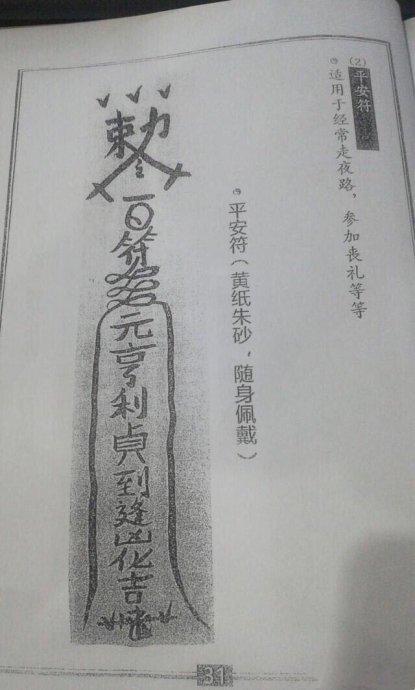 (2)平安符
适用于经常走夜路，参加丧礼等等
平安符(黄纸朱砂，随身佩戴)
敕令
符
元亨利贞到逢凶化吉
31